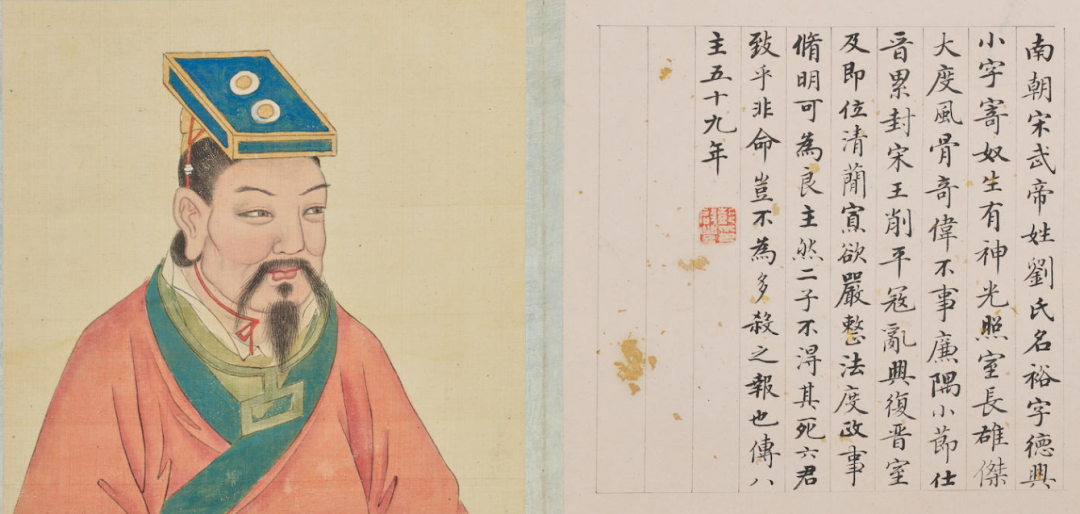 南朝宋武帝姓劉氏名裕字德興
小字寄奴生有神光照室長雄傑
大度風骨奇偉不事廉隅小節仕
晉累封宋王削平寇亂興復晉室
及即位清簡寡欲嚴整法度政事
脩明可為良主然二子不得其死六君
致乎非命豈不為多殺之報也傳八
主五十九年